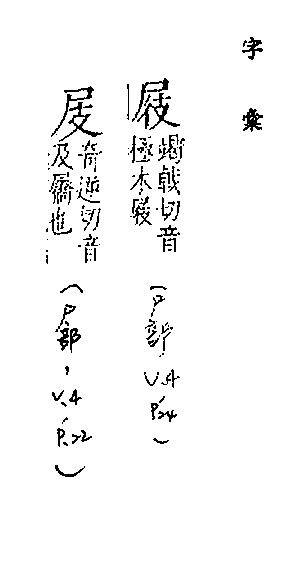 字彙
屐
竭戟切音
極木屐
(尸部, V.4, P.24)
奇逆切音
及屩也
(尸部, V.4, P.22)